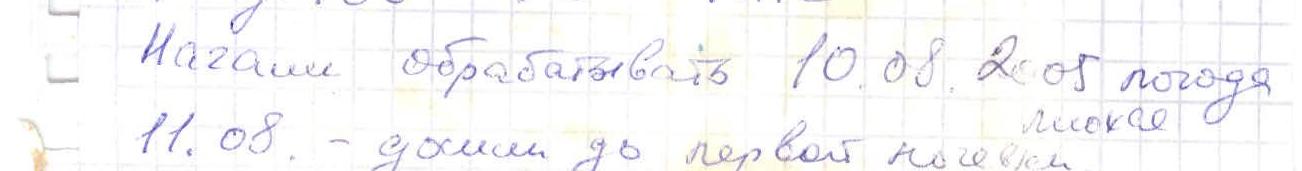 Начали обрабатывать 10.08.2005 погода
плохая
11.08. - дошли до первой ночевки